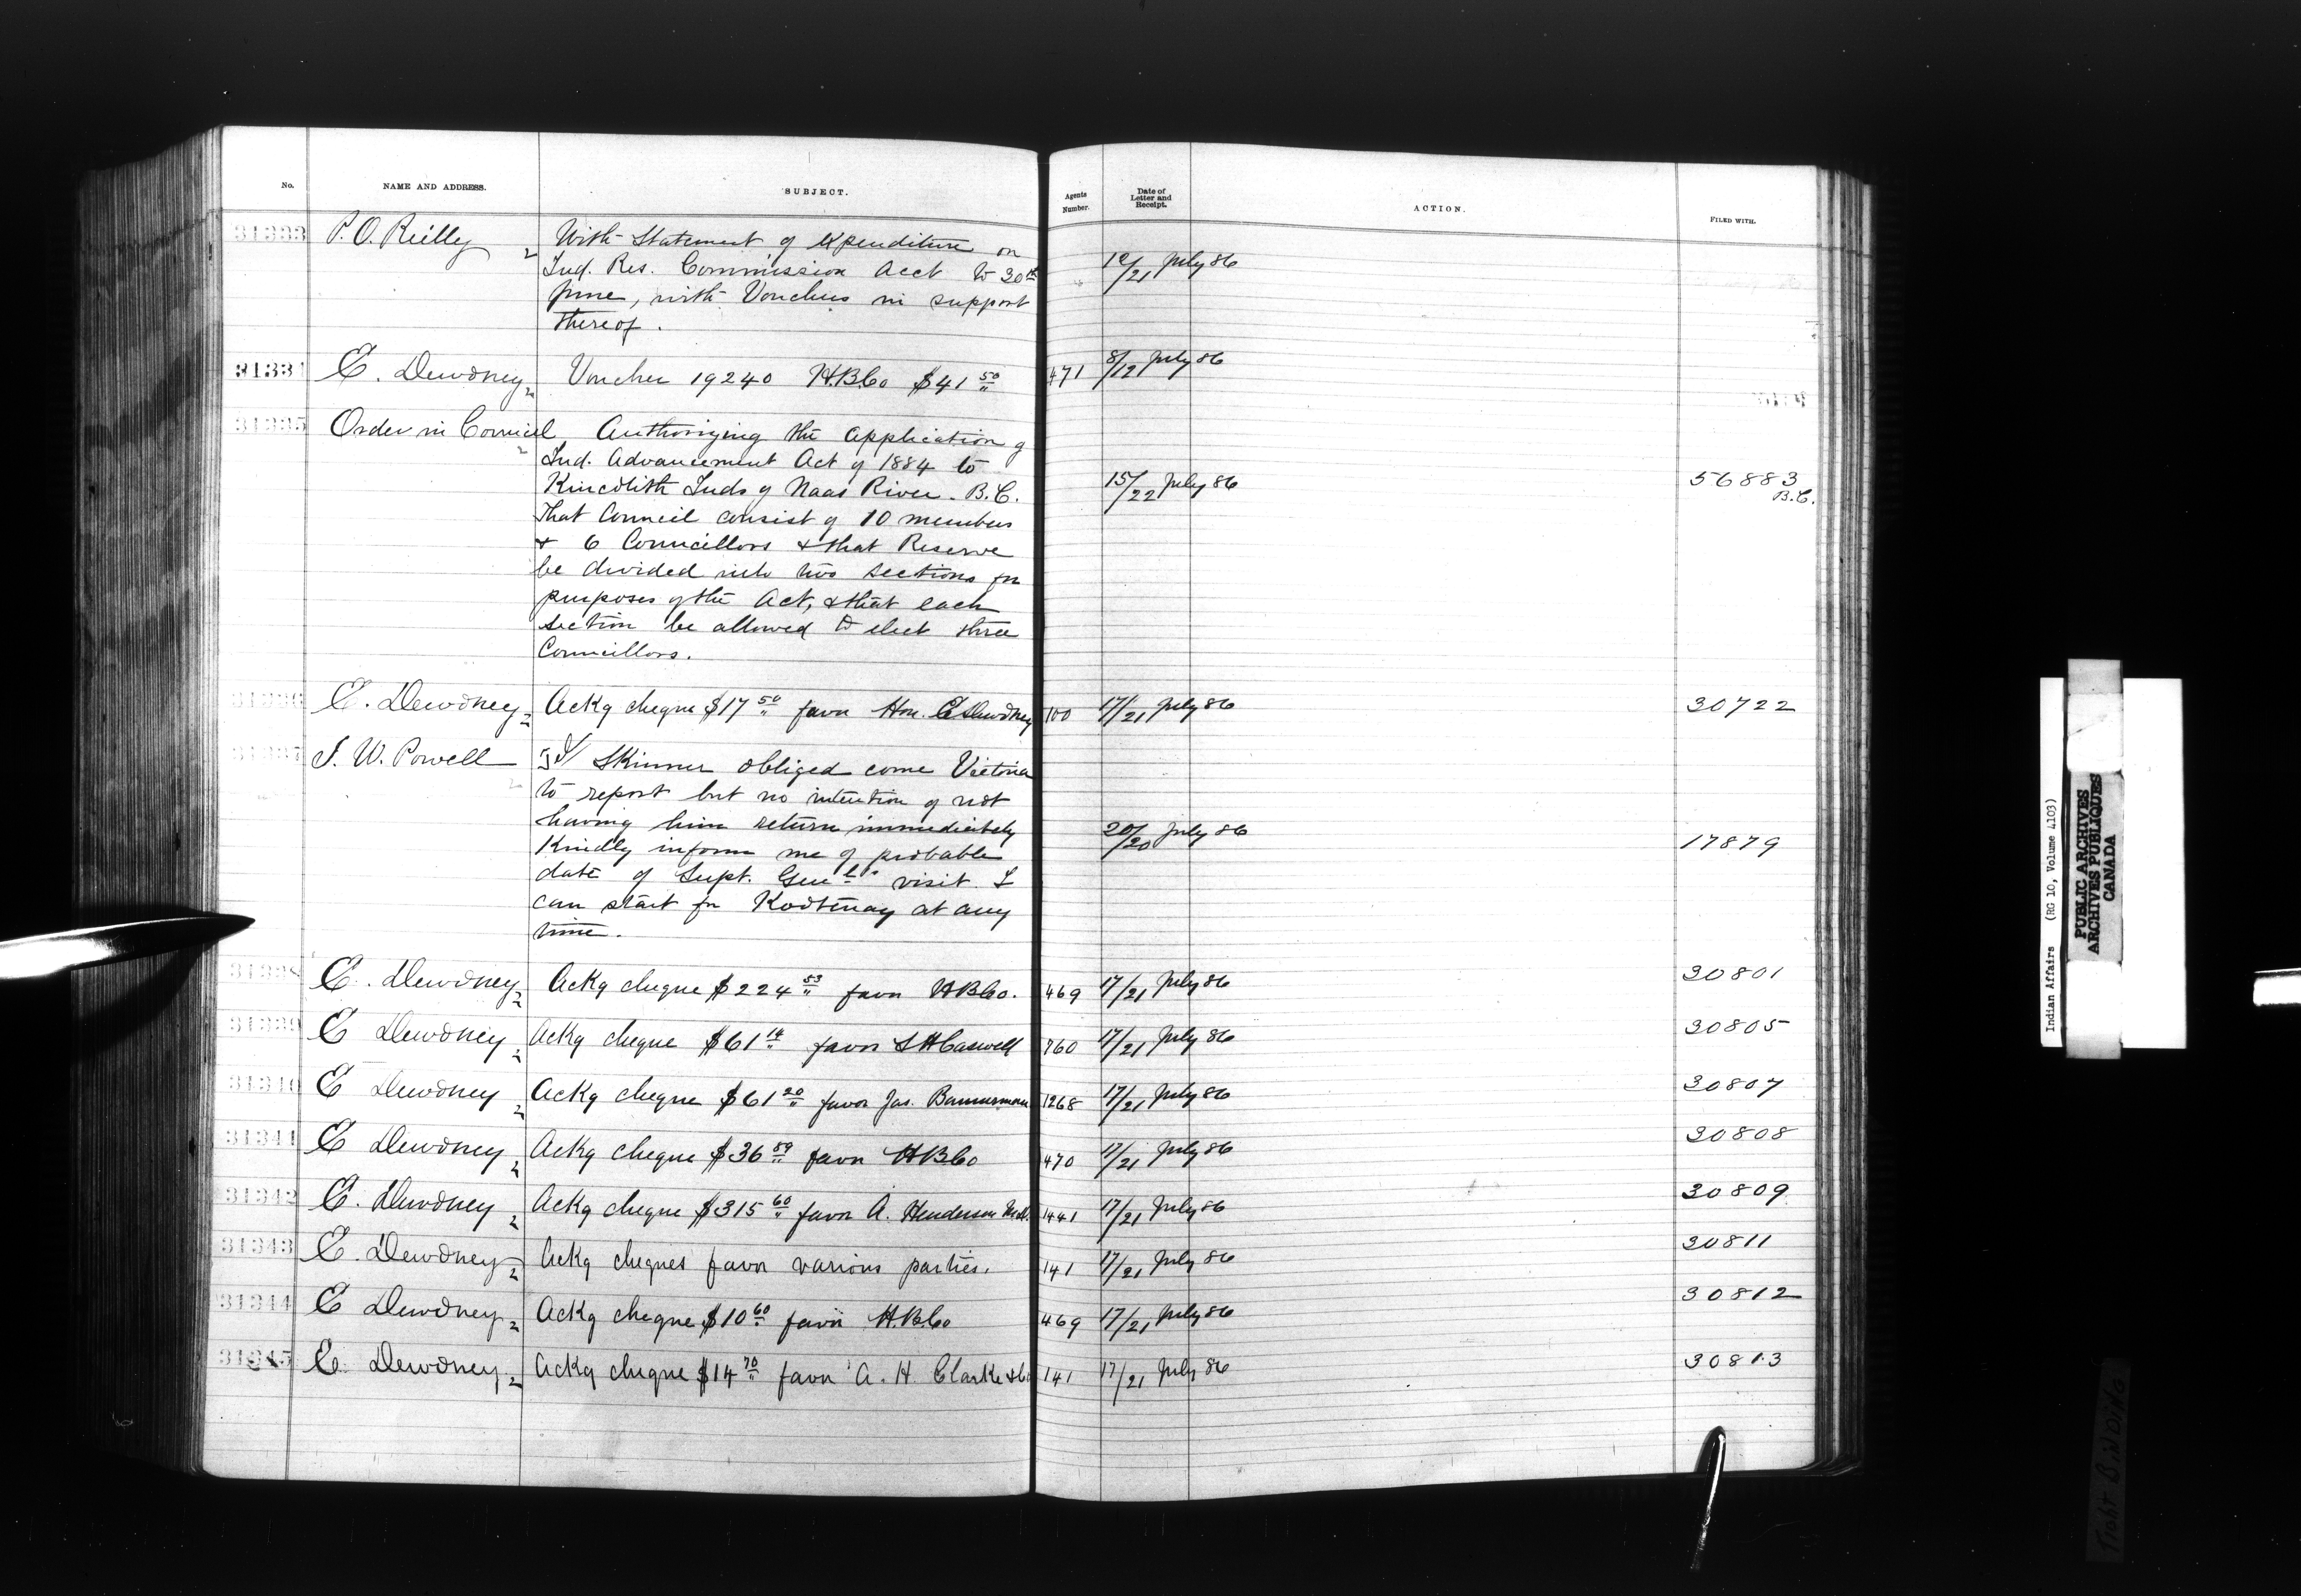 No. NAME AND ADDRESS. SUBJECT. Agents Number. Date of Letter and Receipt. ACTION. FILED WITH.
31333 P. O. Reilly With Statement of expenditure on
Ind. Res. Commission Acct to 30th 12/21 July 86
June, with Vouchers in support
thereof.
31334 E. Dewdney Voucher 19240 H.B.Co $41 50 471 8/12 July 86
31335 Order in Council Authorizing the application of
Ind. Advancement Act of 1884 to
Kincolith Inds of Naas River. B.C. 15/22 July 86 56883 B.C.
That Council consist of 10 members
& 6 Councillors & that Reserve
be divided into two sections for
purposes of the Act, & that each
section be allowed to elect three
Councillors.
31336 E. Dewdney Ackg cheque $17 50 favor Hon. E Dewdney 100 17/21 July 86 30722
31337 I. W. Powell Skinner obliged come Victoria
to report but no intention of not
having him return immediately 20/20 July 86 17879
Kindly inform me of probable
date of Supt. Genl's visit. I
can start for Kootenay at any
time.
31338 E. Dewdney Ackg cheque $224 53 favor H B Co. 469 17/21 July 86 30801
31339 E Dewdney Ackg cheque $61 14 favor S H Caswell 760 17/21 July 86 30805
31340 E Dewdney Ackg cheque $61 20 favor Jas. Bannerman 1268 17/21 July 86 30807
31341 E Dewdney Ackg cheque $36 59 favor H B Co 470 17/21 July 86 30808
31342 E. Dewdney Ackg cheque $315 60 favor A. Henderson 1441 17/21 July 86 30809
31343 E. Dewdney Ackg cheques favor various parties. 141 17/21 July 86 30811
31344 E Dewdney Ackg cheque $10 60 favor H.B.Co 469 17/21 July 86 30812
31345 E. Dewdney Ackg cheque $14 70 favor A. H. Clarke & Co 141 17/21 July 86 30813
Indian Affairs (RG 10, Volume 4103)
PUBLIC ARCHIVES
ARCHIVES PUBLIQUES
CANADA
TIGHT BINDING